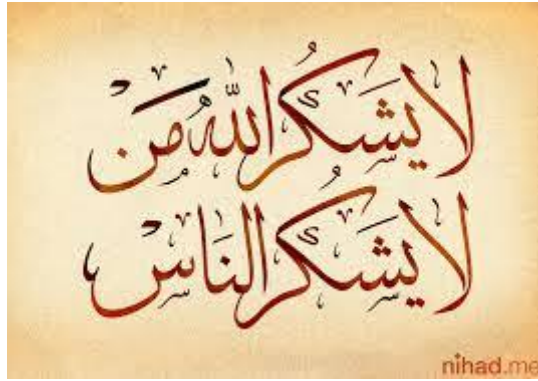 لا يشكر الله من
لا يشكر الناس
nihad.me